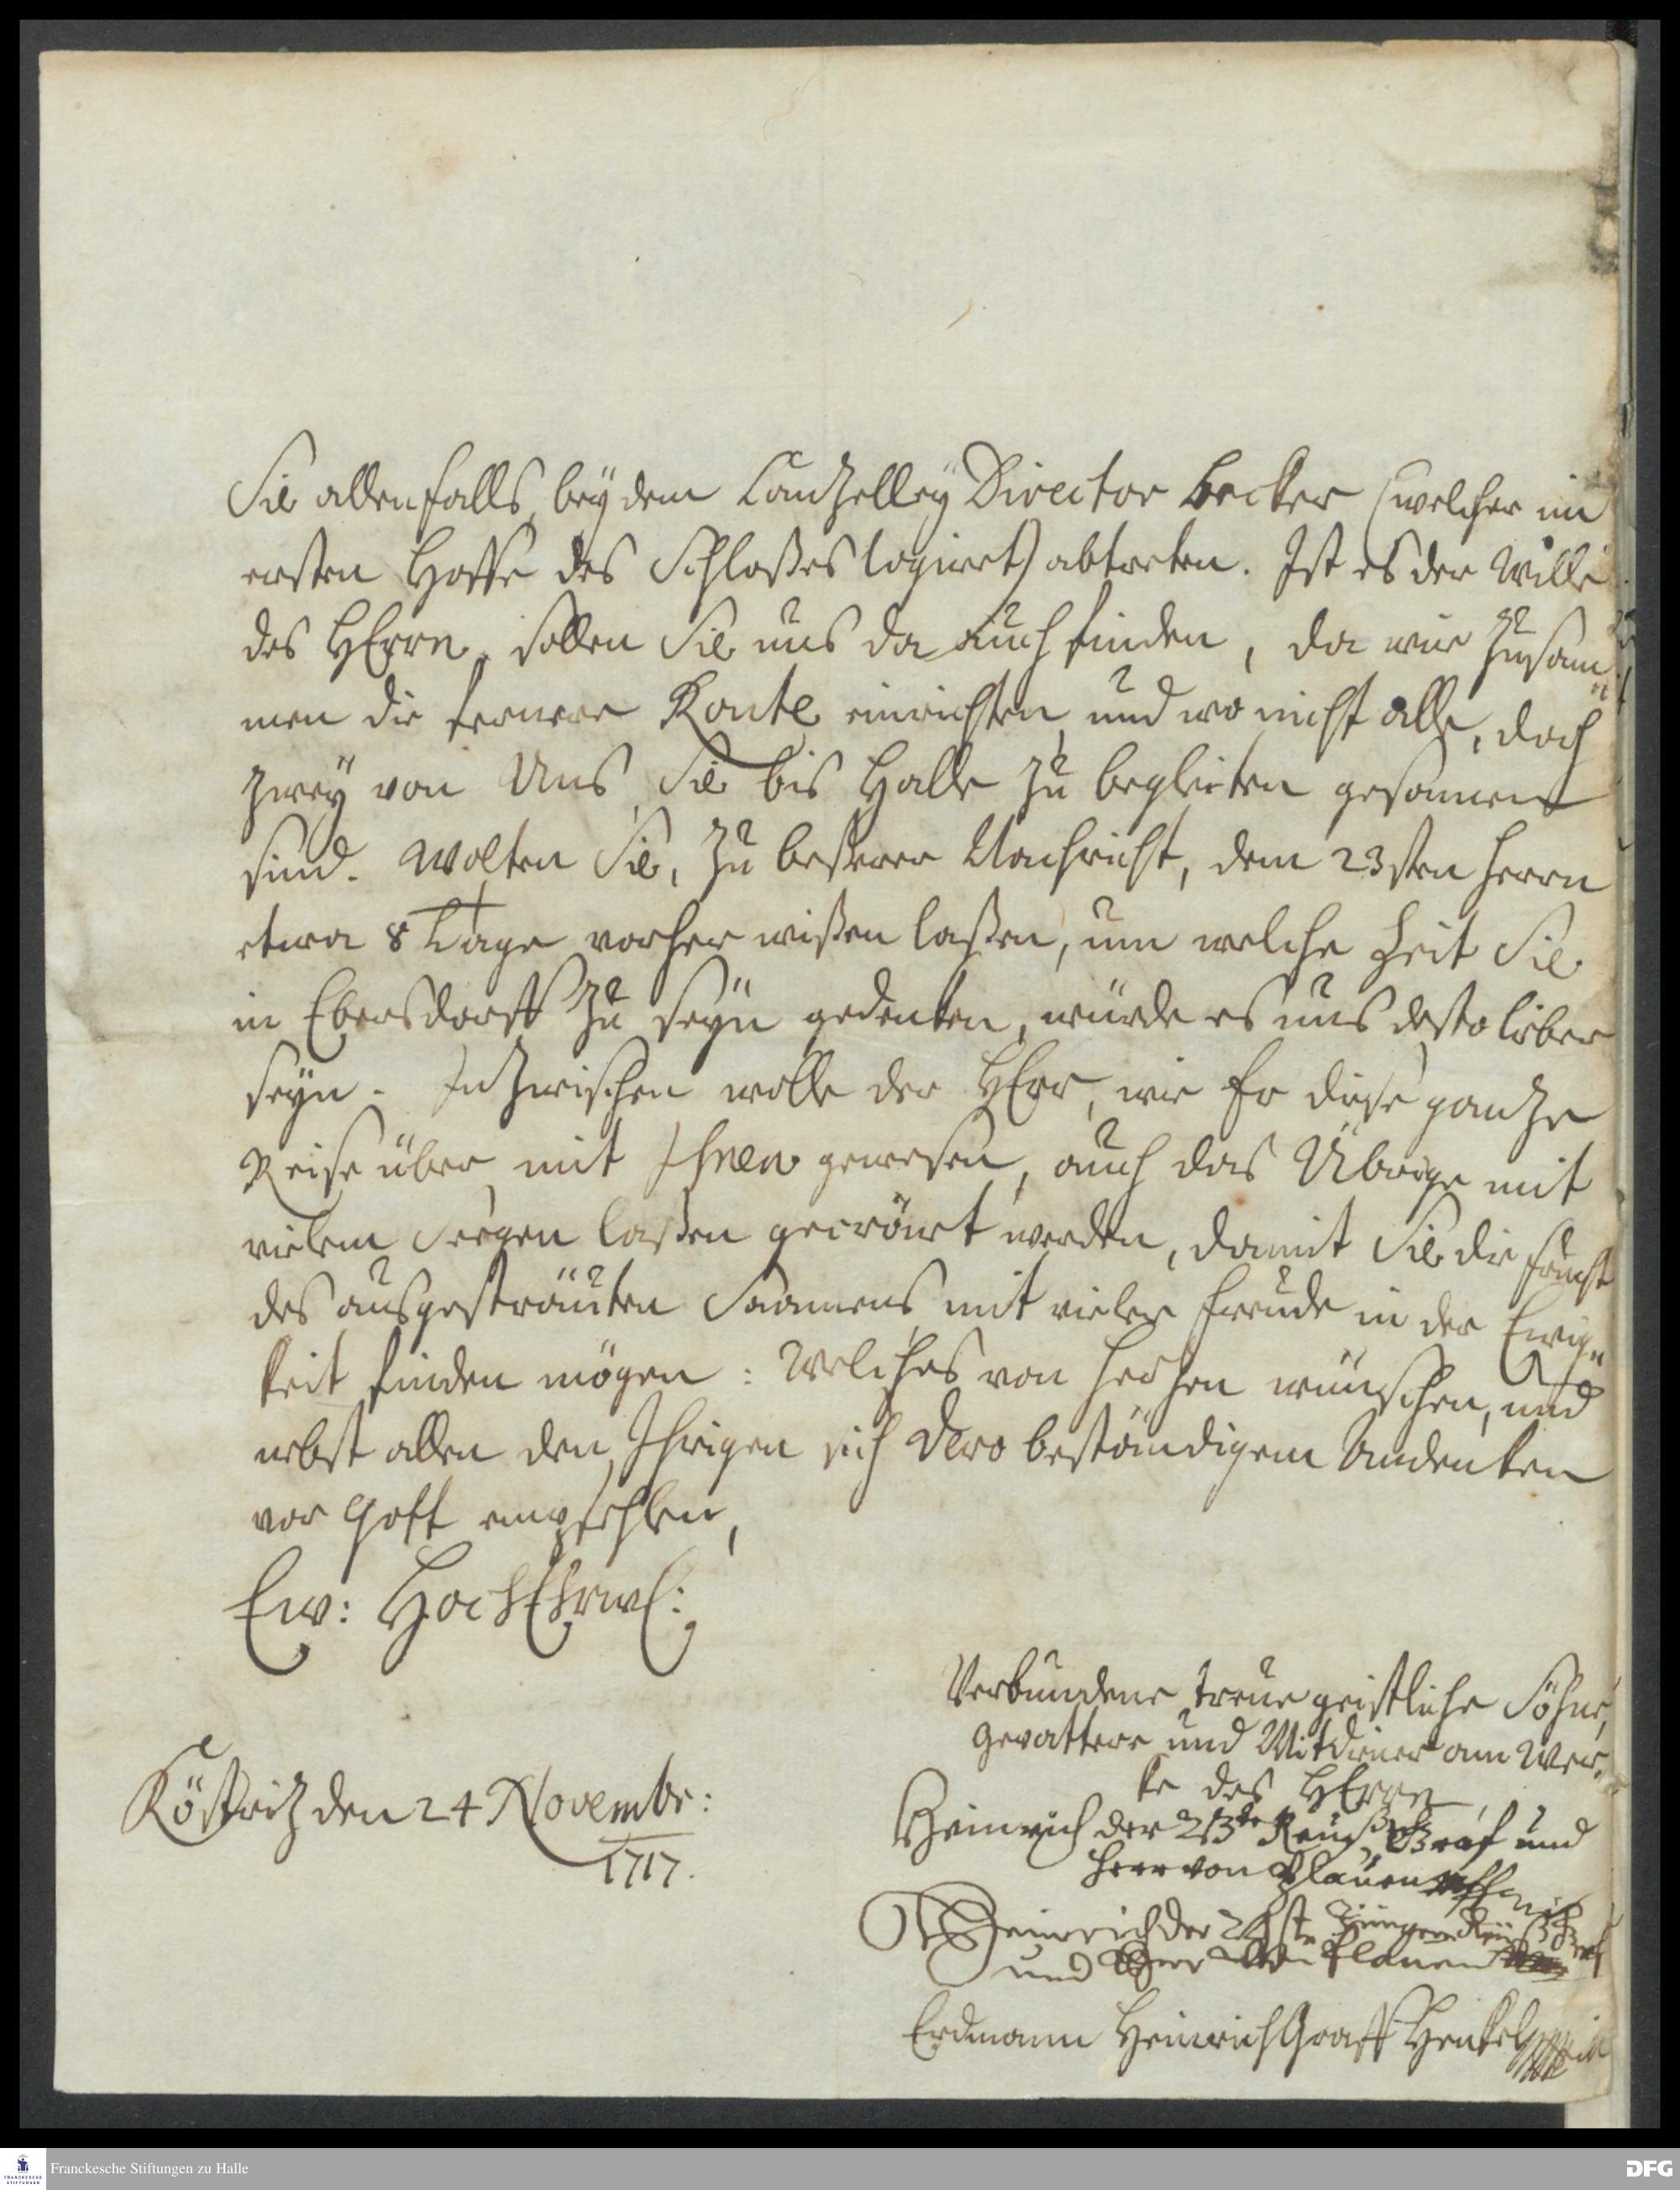 Sie allenfalls bey dem Cantzelley Director Becker (welcher im
ersten Hoffe des Schloßes logiret) abtreten. Ist es der Wille
des HErrn, sollen Sie uns da auch finden, da wir zusam¬
men die fernere Route einrichten, und wo nicht alle, doch
zwey von Uns, Sie bis Halle zu begleiten gesonnen
sind. Wolten Sie, zu beßerer Nachricht, dem 23sten Herrn
etwa 8 Tage vorher wißen laßen, um welche Zeit Sie
in Ebersdorff zu seyn gedenken, würde es uns desto lieber
seyn. Inzwischen wolle der HErr, wie Er diese gantze
Reise über mit Ihnen gewesen, auch das Übrige mit
vielem Seegen laßen gecrönet werden, damit Sie die Frucht
des ausgesträuten Saamens mit vieler Freude in der Ewig¬
keit finden mögen: Welches von Hertzen wünschen, und
nebst allen den Ihrigen sich Dero beständigem Andenken
vor Gott empfehlen,
Ew: HochEhrw:
Verbundene treue geistliche Söhne,
Gevattere und Mitdiener am Wer¬
ke des HErrn,
Köstritz den 24 Novembr:
1717.
Heinrich der 23te Reuß Graf und
Herr von Plauen
Heinrich der 24ste Jünger Reuß Graf
und Herr von Plauen
Erdmann Heinrich Graff Henkel
Franckesche Stiftungen zu Halle
DFG